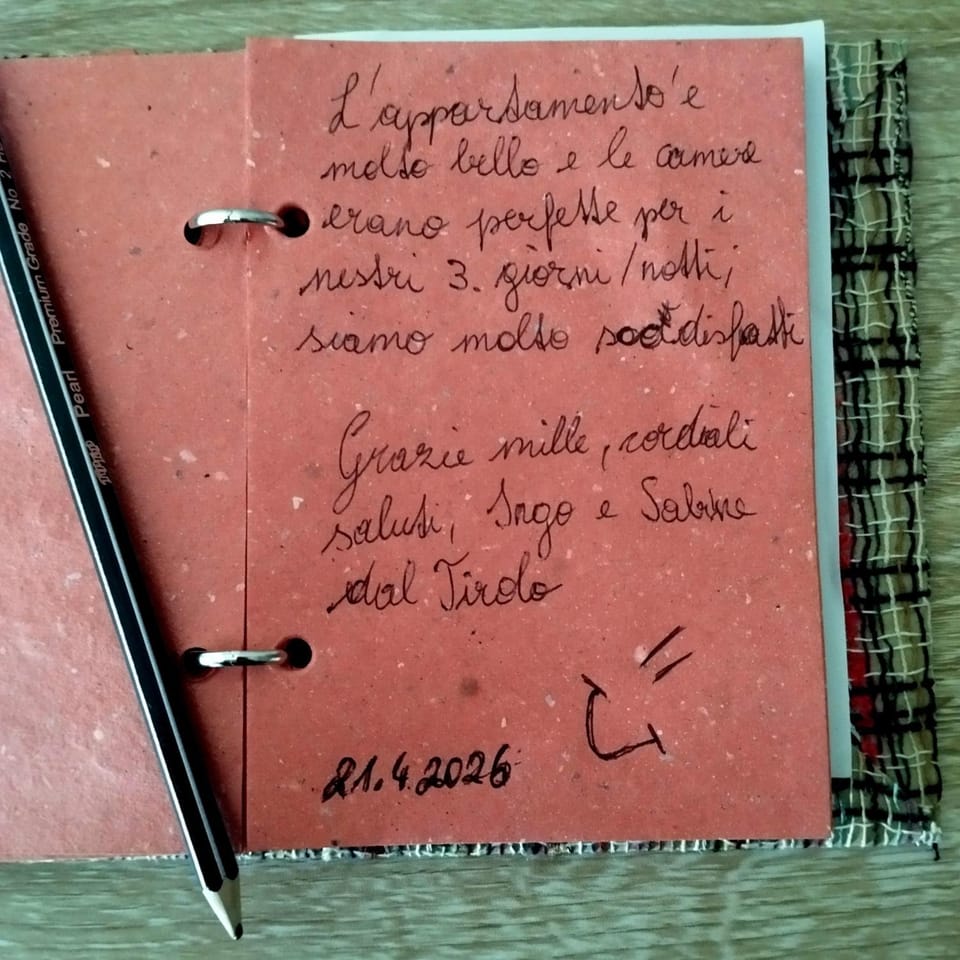 L'appartamento'e
molto bello e le camere
erano perfette per i
nestri 3. giorni/notti,
siamo molto soddisfatti
Grazie mille, cordiali
saluti, Ingo e Sabine
dal Tirolo
21.4.2026
Pearl Premium Grade No 2